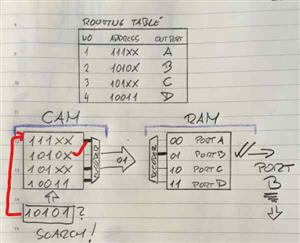 ROUTING TABLE
NO ADDRESS OUTPORT
1 111XX A
2 1010X B
3 101XX C
4 10011 D
CAM
RAM
111XX
1010X
101XX
10011
ENCODER
01
DECODER
00 PORT A
01 PORT B
10 PORT C
11 PORT D
PORT
B
10101?
SEARCH!